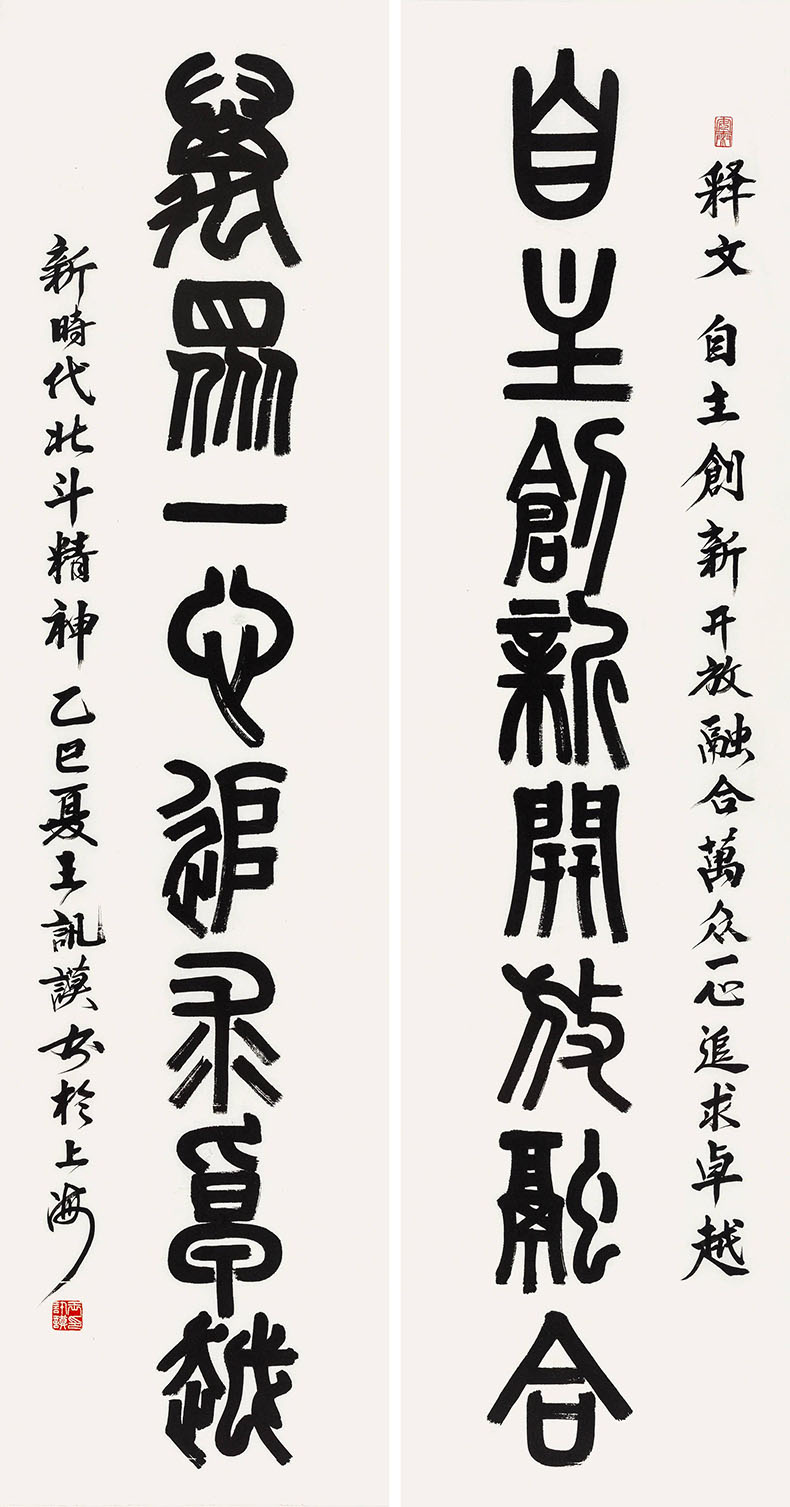 释文 自主創新开放融合萬众一心追求卓越
自主創新開放融合
萬眾一心追求卓越
新時代北斗精神 乙巳夏王訊謨书於上海